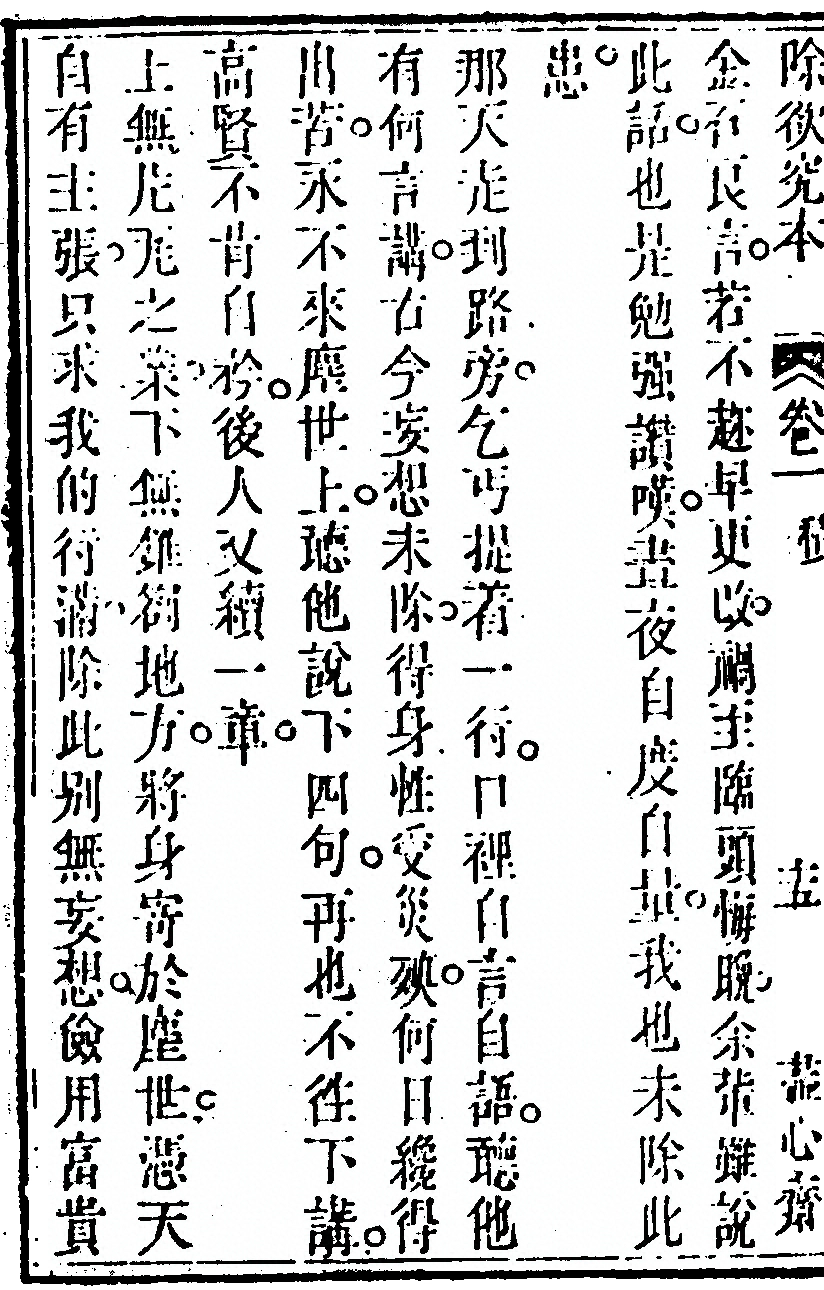 除欲究本 卷一 五 盡心齋
金石良言若不趂早更改禍至臨頭悔晚余輩雖說
此話也是勉强讚嘆晝夜自度自量我也未除此
患
那天走到路旁乞丐提着一行口裡自言自語聽他
有何言講古今妄想未除得身性受災殃何日纔得
出苦永不來塵世上聽他說下四句再也不往下講
高賢不肯自矜後人又續一章
上無片瓦之業下無錐劄地方將身寄於塵世憑天
自有主張只求我的行滿除此别無妄想儉用富貴